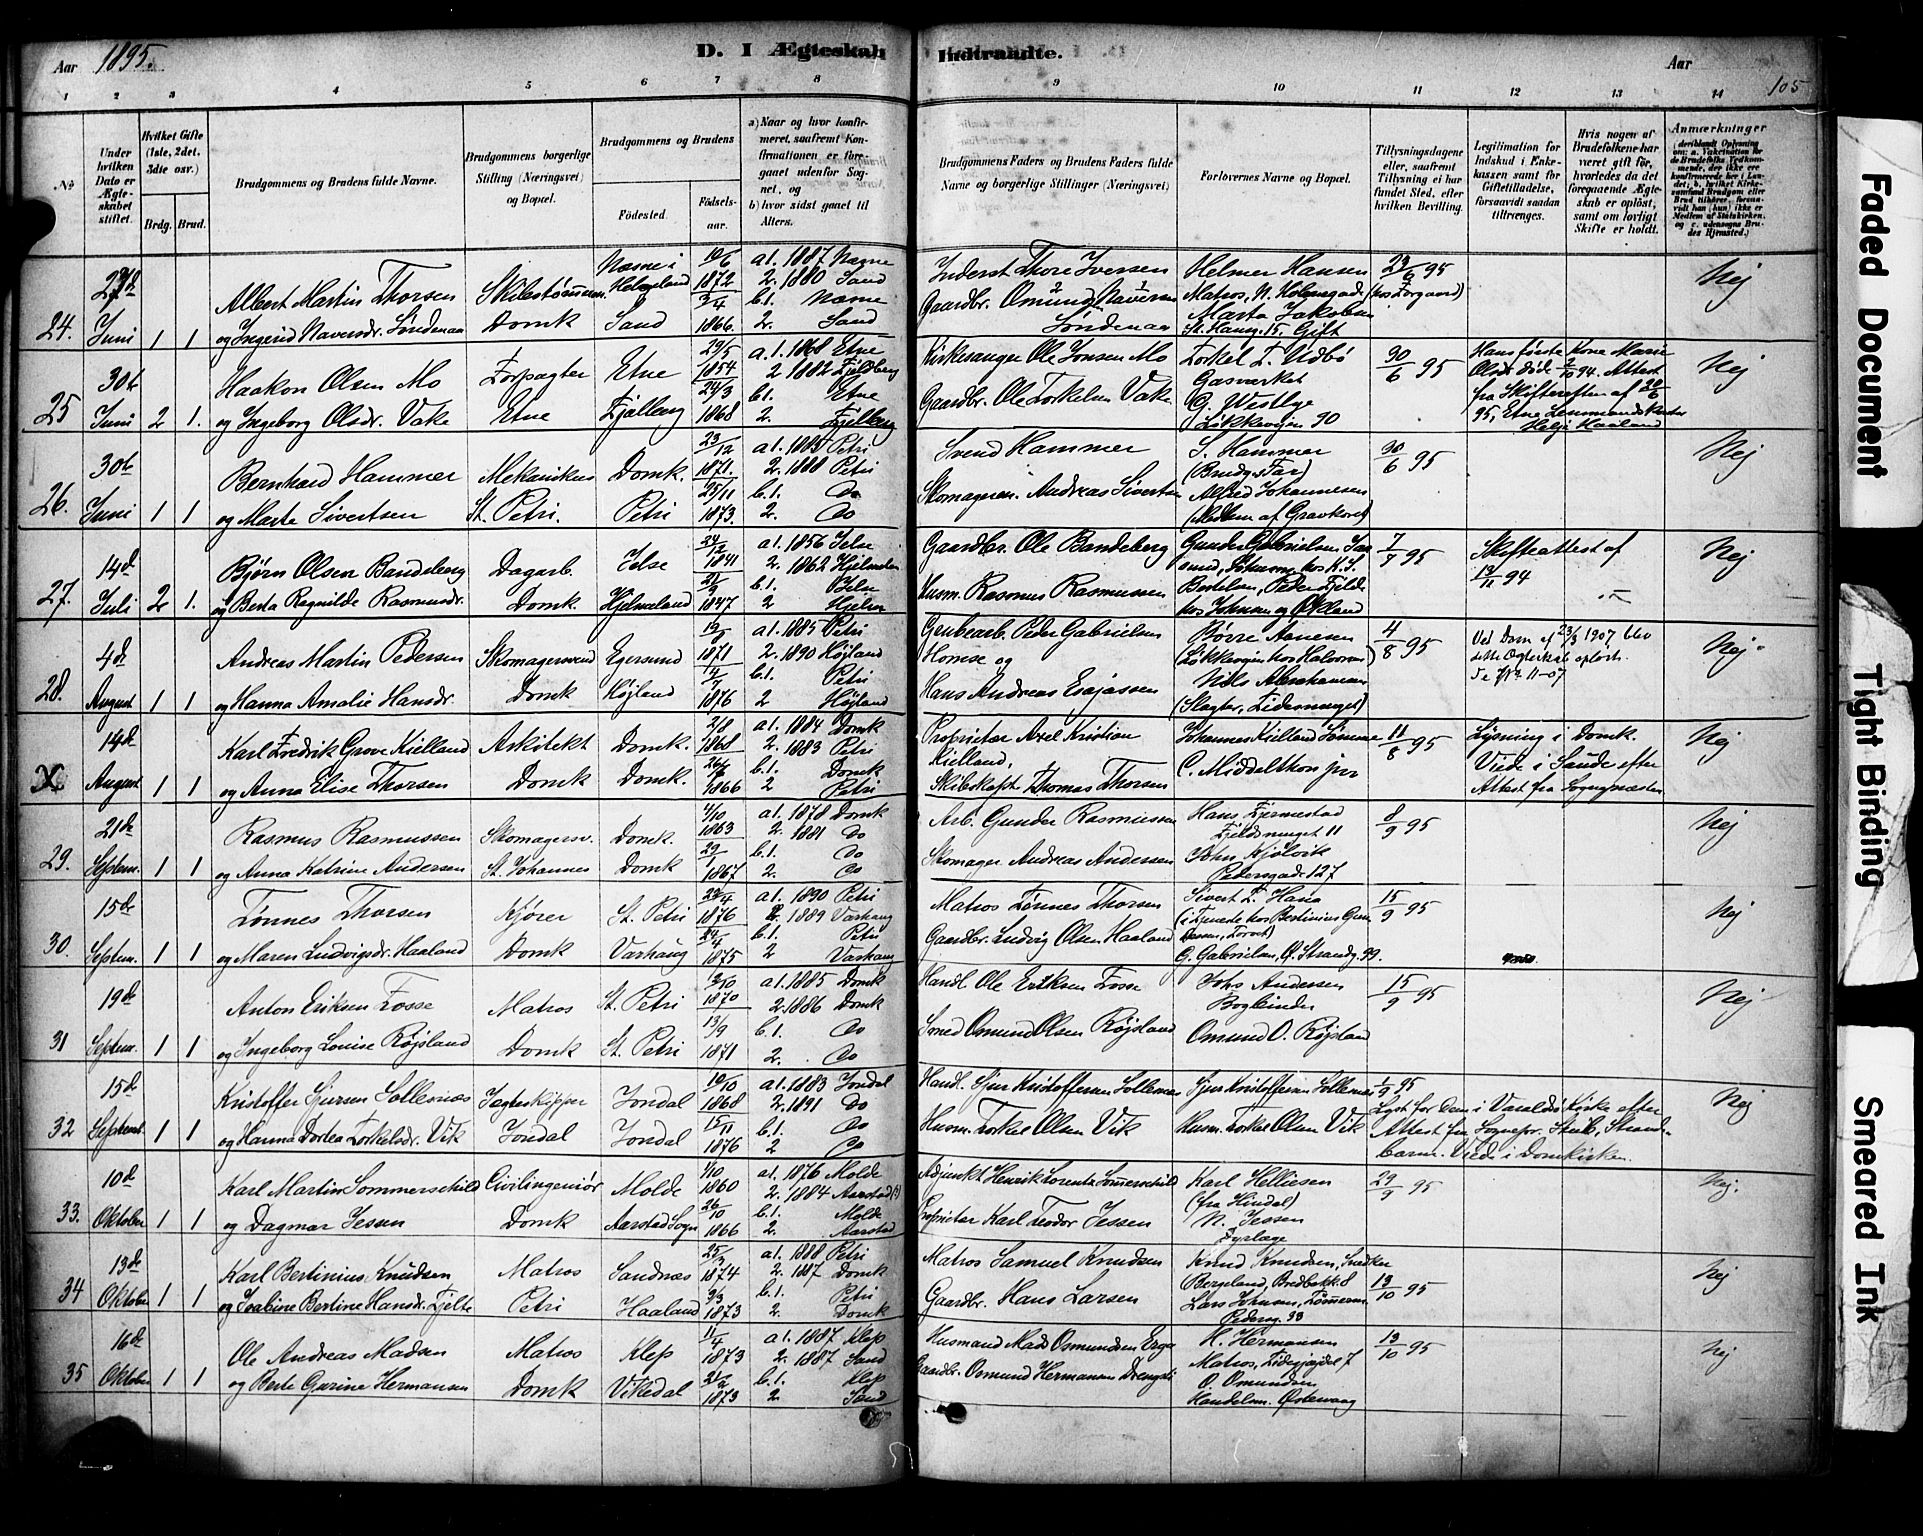 Aar 1895.
D. I Ægteskab Indtraadte.
Aar
105
1 2 3 4 5 6 7 8 9 10 11 12 13 14
No
Under hvilken Dato er Ægteskabet stiftet.
Hvilket Gifte (1ste, 2det, 3die osv.)
Brdg. Brud.
Brudgommens og Brudens fulde Navne.
Brudgommens borgerlige Stilling (Næringsvei) og Bopæl.
Brudgommens og Brudens
Fødested.
Fødselsaar.
a) Naar og hvor konfirmeret, saafremt Konfirmationen er foregaaet udenfor Sognet, og
b) hvor sidst gaaet til Alters.
Brudgommens Faders og Brudens Faders fulde Navne og borgerlige Stillinger (Næringsvei)
Forlovernes Navne og Bopæl.
Tillysningsdagene eller, saafremt Tillysning ei har fundet Sted, efter hvilken Bevilling.
Legitimation for Indskud i Enkekassen samt for Giftetilladelse, forsaavidt saadan tiltrænges.
Hvis nogen af Brudefolkene har været gift før, hvorledes da det foregaaende Ægteskab er opløst, samt om lovligt Skifte er holdt.
Anmærkninger
24. Juni 1 1
Albert Martin Thorsen
og Ingerid Naversdr. Søndenaa
Domk
Helgeland
Sand
1872
1866.
a1. 1887 Næsne
2. 1880 Sand
b.1. Næsne
2. Sand
Inderst Thore Iversen
Gaardbr. Omund Naversen Søndenaa
Helmer Hansen
Matros, N. Holmegade
Marta Jakobsen
St. Hansg. 15. Gift
23/6 95
Nej
25 30te Juni 2 1.
Haakon Olsen Mo
og Ingeborg Olsdr. Vake
Forpagter
Etne
Etne
Fjelberg
29/5 1854
24/3 1868
a.1. 1868 Etne
2 1882 Fjeldberg
b1. Etne
2. Fjelberg
Kirkesanger Ole Jonsen Mo
Gaardbr. Ole Torkelsen Vake
Torkel T. Lidbø
Gasverket
G. Westbye
Løkkevejen 90
30/6 95
Hans første Kone Marie
Olsdr døde 2/10 94. Attest
fra Skifteretten af 20/6
95, Etne Lensmandskontor
Helje Haaland
Nej
26. 30te Juni 1 1
Bernhard Hammer
og Marte Sivertsen
Mekanikus
St. Petri.
Domk.
Petri
23/12 1871.
25/11 1873.
a1. 1885 Petri
2. 1888 Petri
b.1. Do
2. Do
Svend Hammer
Skomagerm. Andreas Sivertsen
S. Hammer
(Brudg. Far)
Alfred Johannesen
(Medlem af Gravkoret)
30/6 95
Nej
27. 14de Juli 2 1.
Bjørn Olsen Bandeberg
og Berta Ragnilde Rasmusdr.
Dagarb.
Domk.
Jelse
Hjelmeland
24/12 1841
1847
a1. 1856 Jelse
2. 1862 Hjelmeland
b.1. Jelse
2 Hjelm
Gaardbr. Ole Bandeberg
Husm. Rasmus Rasmussen
7/7 95
Skifteattest af
13/11 94
Nej
28. 4de August 1 1
Andreas Martin Pedersen
og Hanna Amalie Hansdr.
Skomagersvend
Domk
Egersund
Højland
1871
1876
a1. 1885 Petri
2. 1890 Højland
b1. Petri
2 Højland
Grubearb. Peder Gabrielsen
Homse og
Hans Andreas Esajassen
Børre Aanesen
(Løkkevejen hos Halvorsen)
Nils Abrahamsen
(Slagter, Lidermarget)
4/8 95
Ved Dom af 23/3 1907 blev
dette Ægteskab opløst.
Nej.
14de August 1 1
Karl Fredrik Grove Kielland
og Anna Elise Thorsen
Arkitekt
Domk
Domk.
Domk.
2/8 1868
1866
a1. 1884 Domk
2. 1883 Petri
b.1. Domk
2 Petri
Proprietær Axel Kristian
Kielland,
Skibskapt. Thomas Thorsen
Johannes Kielland Sømme
C. Middelthon jnr
11/8 95
Lysning i Domk.
Viede i Saude efter
Attest fra Sognepræsten
Nej
29. 21de Septem. 1 1
Rasmus Rasmussen
og Anna Katrine Andersen
Skomagersv.
St. Johannes
Domk.
Domk
4/10 1863
29/1 1867
a1. 1878 Domk
2. 1881 Do
b.1. Do
2. Do
Arb. Gunder Rasmussen
Skomager Andreas Andersen
Hans Fjermestad
11
John Kjølvik
Pedersgade 127
8/9 95
Nej
30. 15de Septem. 1 1
Tønnes Thorsen
og Maren Ludvigsdr. Haaland
Kjører
Domk
St. Petri
Varhaug
23/4 1876
24/4 1875
a1. 1890 Petri
2. 1889 Varhaug
b.1. Petri
2 Varhaug
Matros Tønnes Thorsen
Gaardbr. Ludvig Olsen Haaland
Sivert T. Hana
G. Gabrielsen, Ø. Strandg. 99.
15/9 95
Nej
31 19de Septem. 1 1
Anton Eriksen Fosse
og Ingeborg Louise Røjsland
Matros
Domk
St. Petri
St. Petri
1870
13/9 1871
a1. 1885 Domk
2. 1886 Domk
b.1. Do
2. Do
Handl. Ole Eriksen Fosse
Smed Omund Olsen Røjsland
Johs Andersen
Bogbinder
Omund O. Røjsland
15/9 95
Nej
32 15de Septembr. 1 1
Kristoffer Sjursen Solesnæs
og Hanna Dortea Torkelsdr. Vik
Jægteskipper
Jondal
Jondal
Jondal
10/10 1868
15/11 1876
a1. 1883 Jondal
2. 1891 Do
b.1. Do
2 Do
Handl. Sjur Kristoffersen Solesnæs
Husm. Torkel Olsen Vik
Sjur Kristoffersen Solesnæs
Husm. Torkel Olsen Vik
1/9 95
Lyst for dem i Varaldsø Kirke efter
Attest fra Sognepr. Skub. Strand-
barm. Viede i Domkirken.
Nej
33. 10de Oktober 1 1
Karl Martin Sommerschild
og Dagmar Jessen
Civilingeniør
Domk
Molde
Aarstad Sogn
1/10 1860
26/10 1866
a1. 1876 Molde
2. 1884 Aarstad(?)
b.1. Molde
2. Aarstad
Adjunkt Henrik Lorentz Sommerschild
Proprietær Karl Teodor Jessen
Karl Helliesen
(fra Hindal)
N. Jessen
Dyrlæge
29/9 95
Nej.
34 13de Oktober 1 1
Karl Bertinius Knudsen
og Joabine Bertine Hansdr. Tjelte
Matros
Petri
Sandnæs
Haaland
25/3 1874
9/3 1873
a1. 1888 Petri
2. 1887 Domk
b.1. Petri
2. Domk
Matros Samuel Knudsen
Gaardbr. Hans Larsen
Knud Knudsen, Snedker
Bergeland, Bredbakk. 8
Lars Johnsen, Tømmerm.
Pedersg. 33
13/10 95
Nej
35 16de Oktober 1 1
Ole Andreas Madsen
og Berte Gurine Hermansen
Matros
Domk
Klep
Vikedal
11/4 1873
21/2 1873
a1. 1887 Klep
2. 1887 Sand
b.1. Klep
2. Sand
Husmand Mads Osmundsen Erga
Gaardbr. Osmund Hermansen
H. Hermansen
Matros, 7
O. Omundsen
Handelsm. Østervaag
13/10 95
Nej
Faded Document
Tight Binding
Smeared Ink